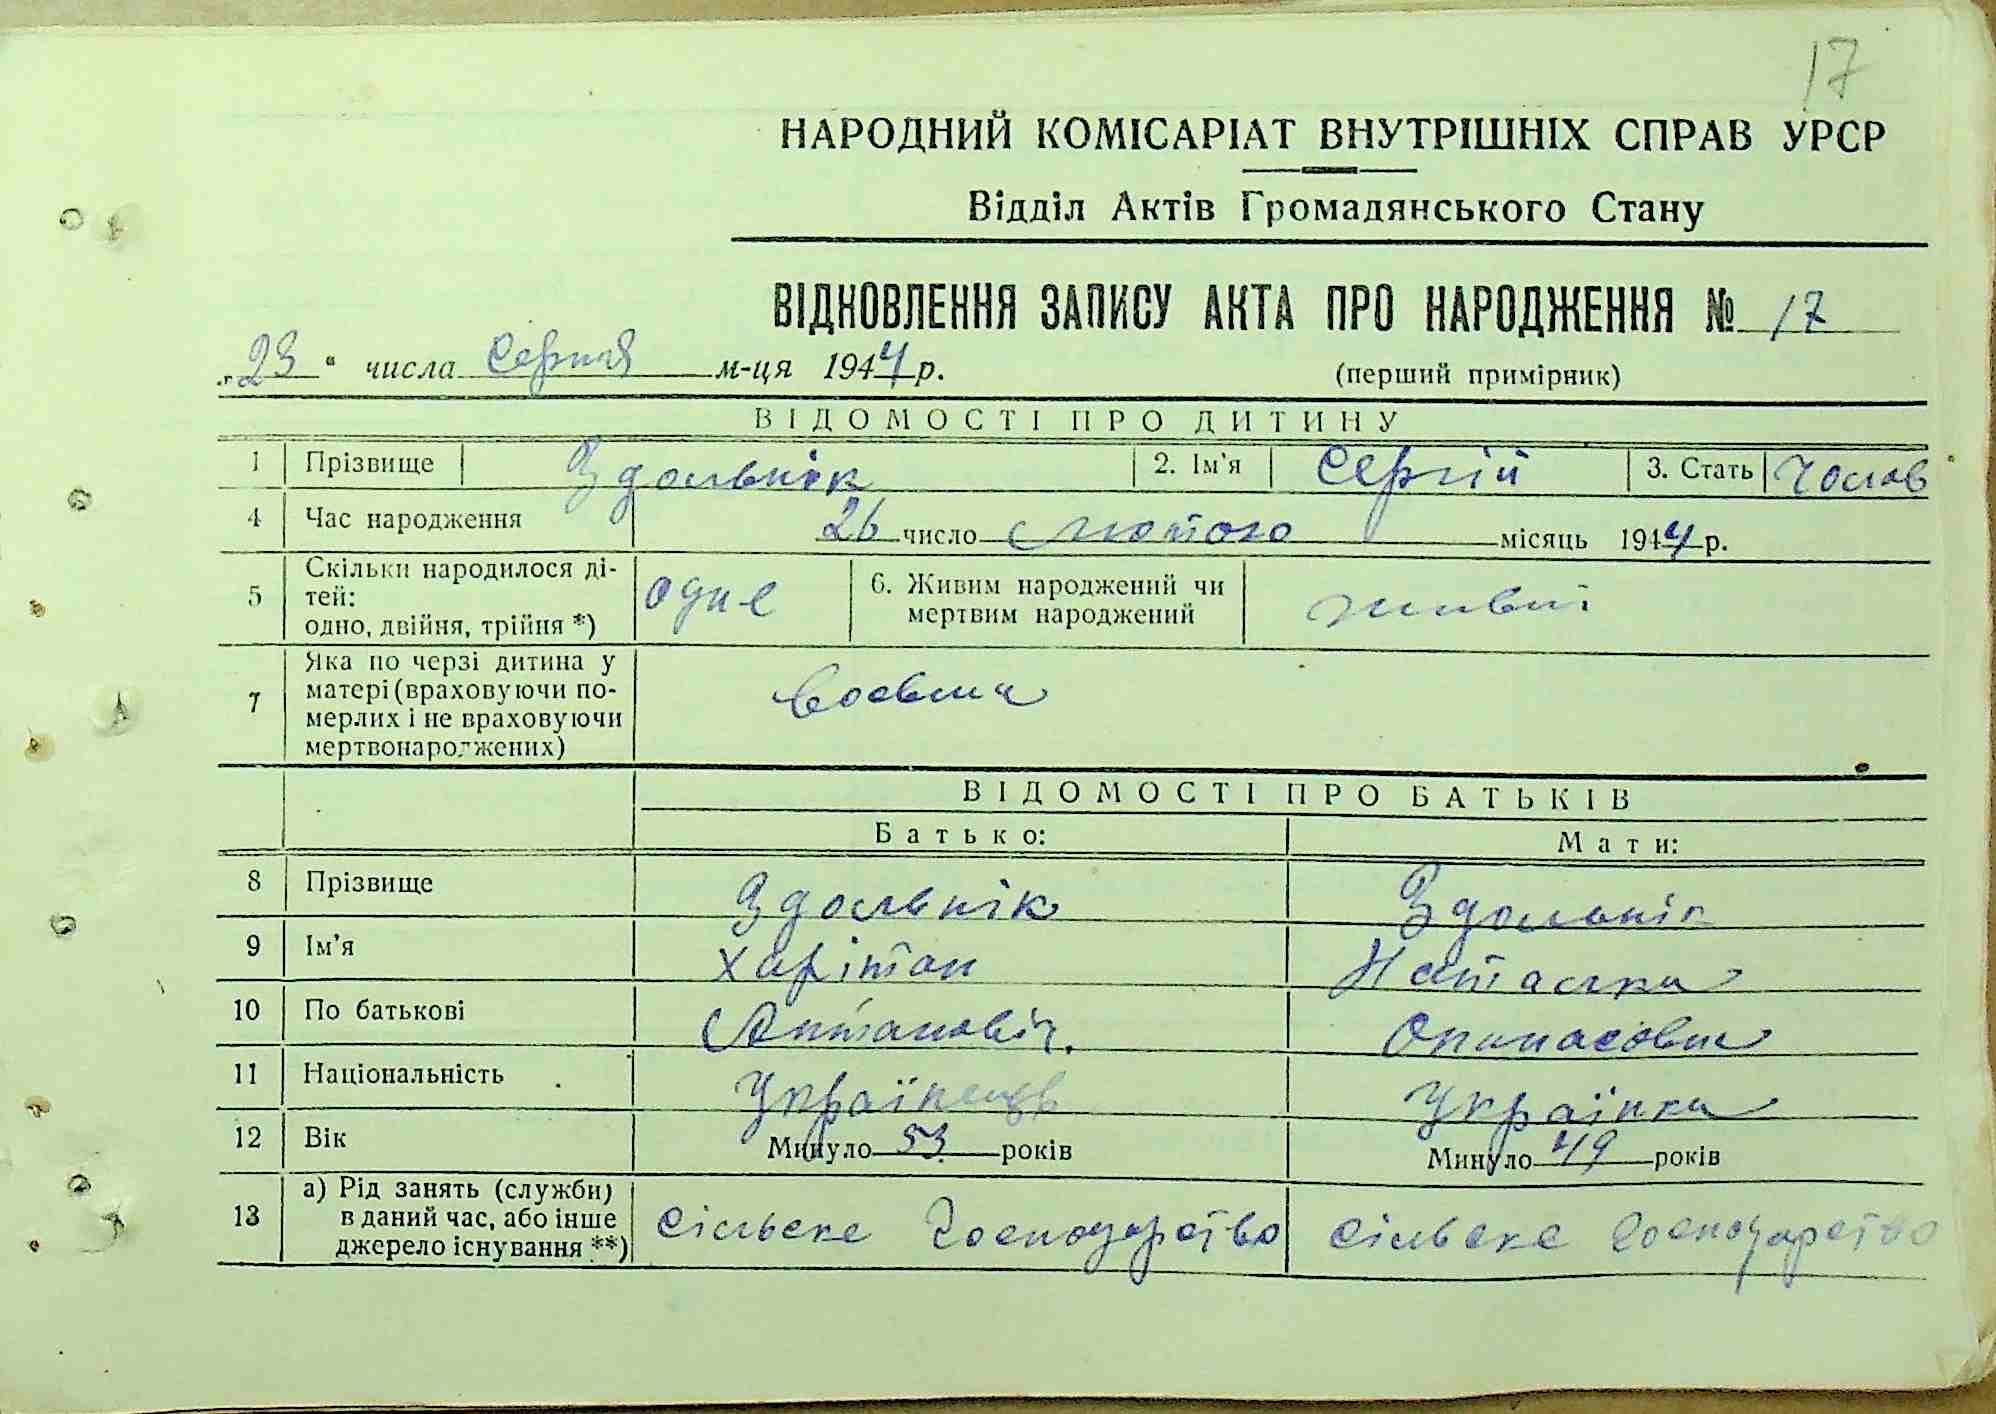 17
НАРОДНИЙ КОМІСАРІАТ ВНУТРІШНІХ СПРАВ УРСР
Відділ Актів Громадянського Стану
ВІДНОВЛЕННЯ ЗАПИСУ АКТА ПРО НАРОДЖЕННЯ № 17
„23“ числа Серпня м-ця 1944 р. (перший примірник)
ВІДОМОСТІ ПРО ДИТИНУ
1 Прізвище Здольнік 2. Ім'я Сергій 3. Стать Чолов
4 Час народження 26 число лютого місяць 1944 р.
5 Скільки народилося ді-
тей:
одно, двійня, трійня *) одне 6. Живим народжений чи
мертвим народжений живий
7 Яка по черзі дитина у
матері (враховуючи по-
мерлих і не враховуючи
мертвонароджених) восьма
ВІДОМОСТІ ПРО БАТЬКІВ
Батько: Мати:
8 Прізвище Здольнік Здольнік
9 Ім'я Харітон Наталка
10 По батькові Антановіч. Опанасовна
11 Національність Українець Українка
12 Вік Минуло 53 років Минуло 49 років
13 а) Рід занять (служби)
в даний час, або інше
джерело існування **) сільське Господарство сільське Господарство